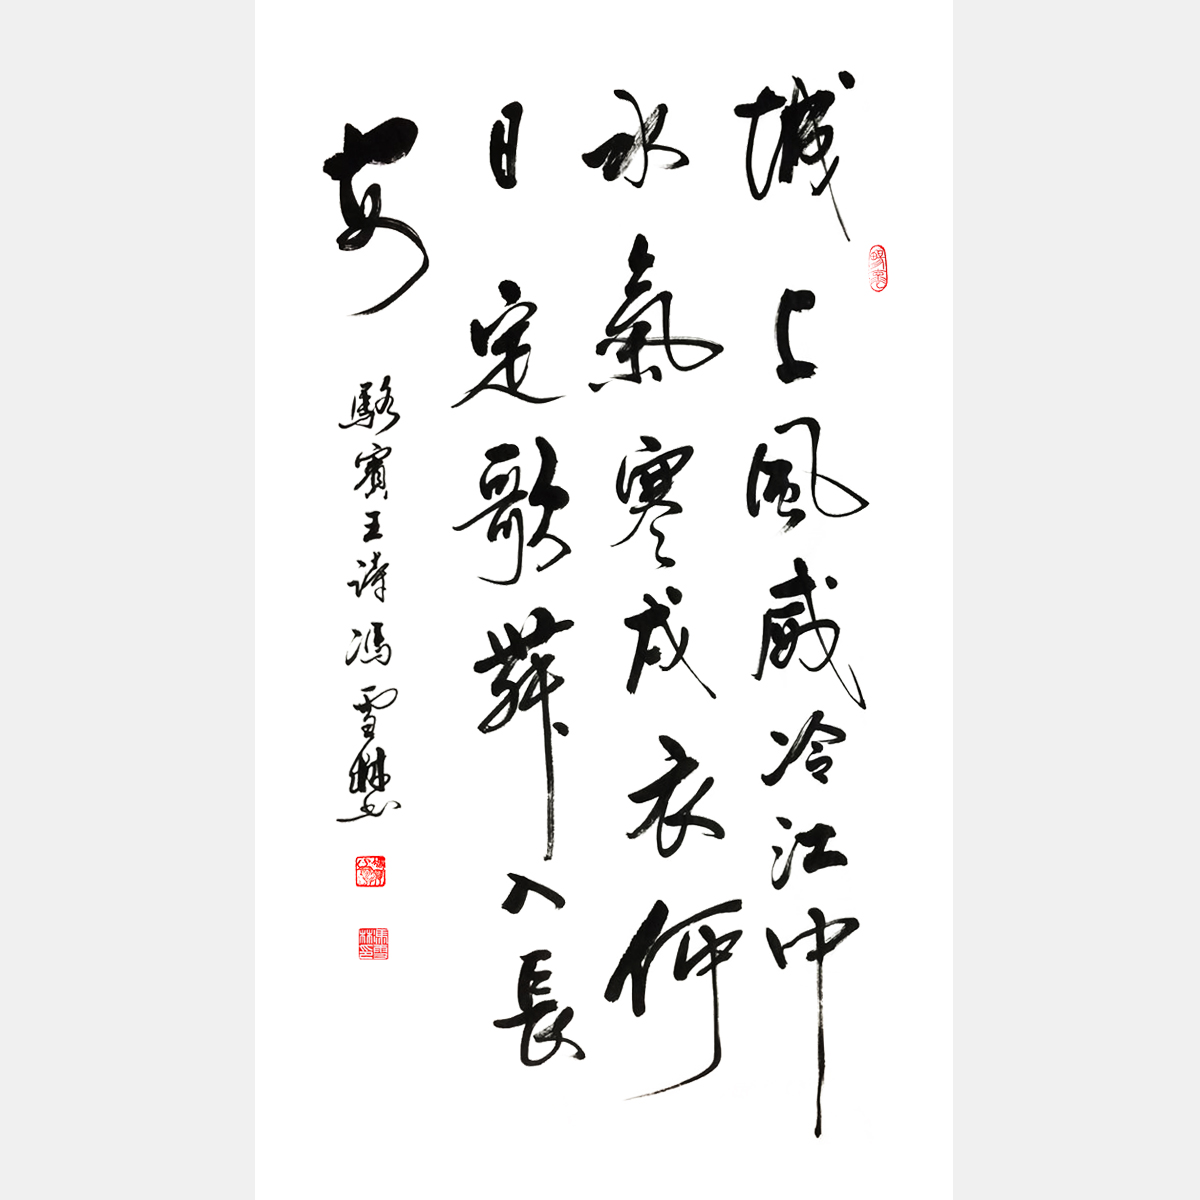 城上風威冷江中
水氣寒戎衣何
日定歌舞入長
安
駱賓王詩馮雪林書
馮雪林印